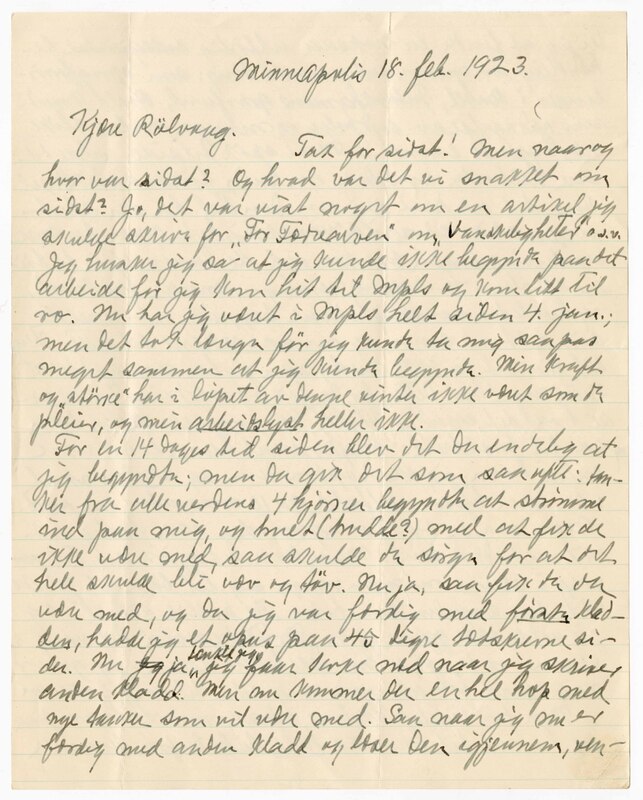 Minneapolis 18. feb. 1923.
Kjære Rölvaag.
Tak for sidst! Men naar og
hvor var sidst? Og hvad var det vi snakket om
sidst? Jo, det var vist noget om en artikel jeg
skulde skrive for "For Fædrearven" om "Vanskeligheter" o.s.v.
Jeg husker jeg sa at jeg kunde ikke begynde paa det
arbeide før jeg kom hit til Mpls og kom litt til
ro. Nu har jeg været i Mpls helt siden 4. jan.;
men det tok længe før jeg kunde ta mig saapas
meget sammen at jeg kunde begynde. Min kraft
og "større" har i løpet av denne vinter ikke været som de
pleier, og min arbeidslyst heller ikke.
For en 14 dages tid siden blev det da endelig at
jeg begyndte; men da gik det som saa ofte: tan-
ker fra alle verdens 4 hjørner begyndte at strømme
ind paa mig, og truet (trudde?) med at fik de
ikke være med, saa skulde de sørge for at det
hele skulde bli væv og tøv. Nu ja, saa fik de da
være med, og da jeg var færdig med første klad-
den, hadde jeg et opus paa 45 digre tætskrevne si-
der. Nu ja, tænkte jeg, jeg faar kokke ned naar jeg skriver
anden kladd. Men nu kommer der en hel hop med
nye tanker som vil være med. Saa naar jeg nu er
færdig med anden kladd og læser den igjennem, ven-